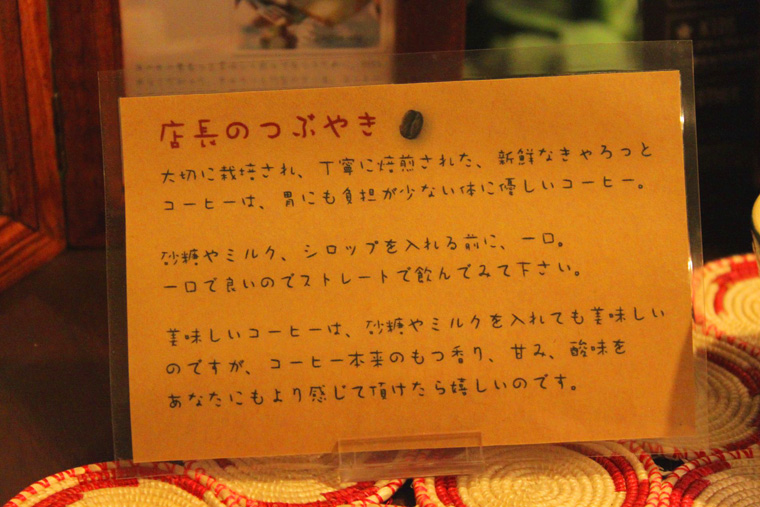 店長のつぶやき
大切に栽培され、丁寧に焙煎された、新鮮なきゃろっと
コーヒーは、胃にも負担が少ない体に優しいコーヒー。
砂糖やミルク、シロップを入れる前に、一口。
一口で良いのでストレートで飲んでみて下さい。
美味しいコーヒーは、砂糖やミルクを入れても美味しい
のですが、コーヒー本来のもつ香り、甘み、酸味を
あなたにもより感じて頂けたら嬉しいのです。